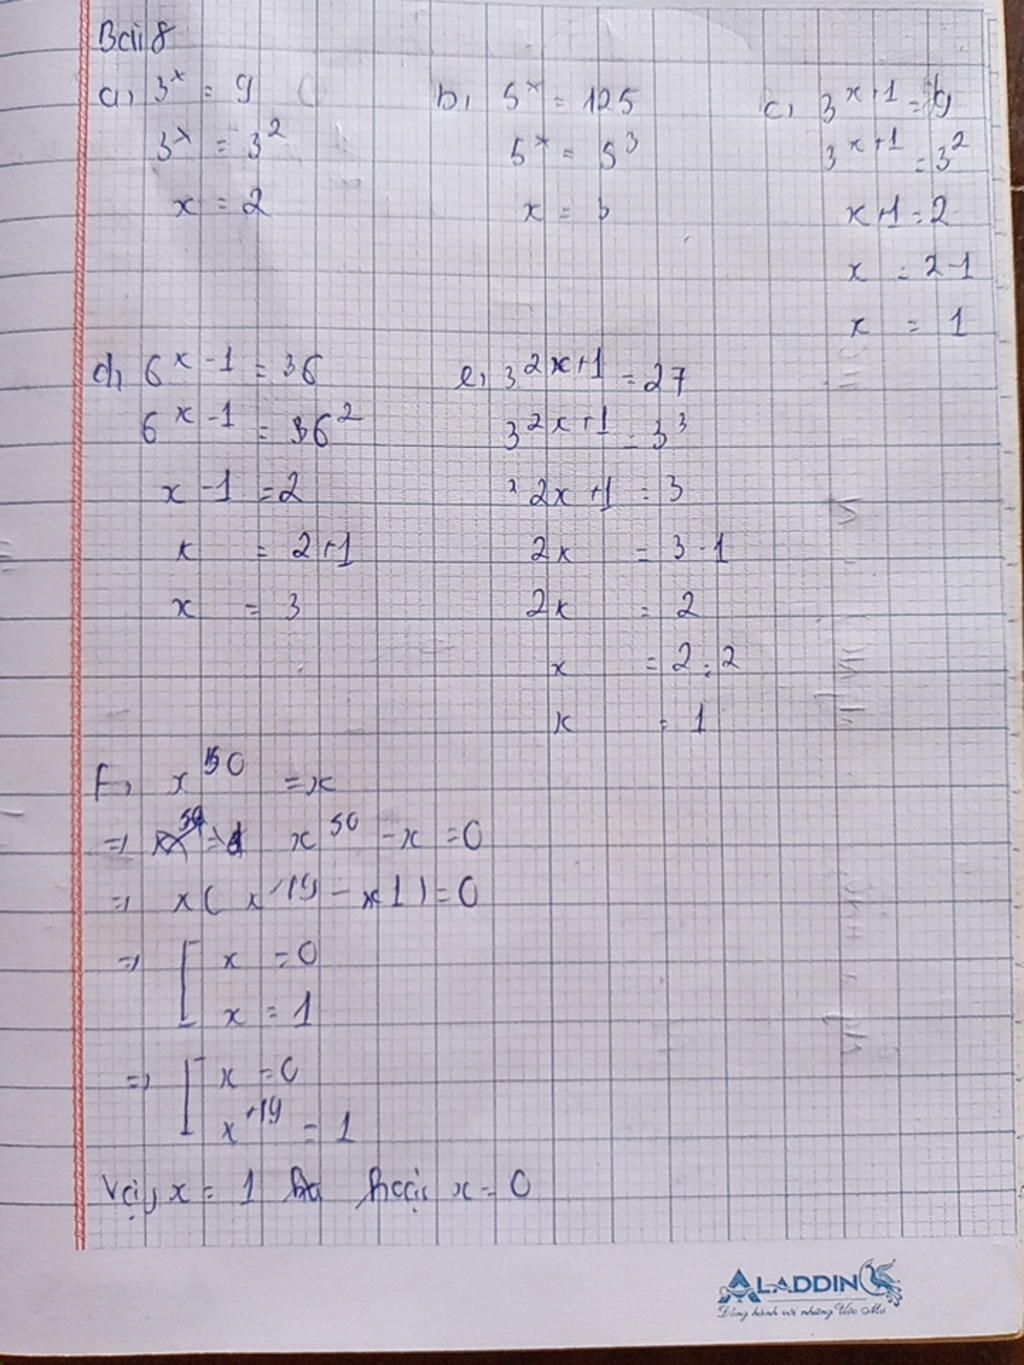 Bài 8
a, 3^x = 9
3^x = 3^2
x = 2
b, 5^x = 125
5^x = 5^3
x = 3
c, 3^{x+1} = 9
3^{x+1} = 3^2
x+1 = 2
x = 2-1
x = 1
d, 6^{x-1} = 36
6^{x-1} = 36^2
x-1 = 2
x = 2+1
x = 3
e, 3^{2x+1} = 27
3^{2x+1} = 3^3
2x+1 = 3
2x = 3-1
2x = 2
x = 2:2
x = 1
F, x^{50} = x
=> x^{50} - x = 0
=> x( x^{49} - 1) = 0
=> [ x = 0
x = 1
=> [ x = 0
x^{49} = 1
Vậy x = 1 hoặc x = 0
ALADDIN
Đồng hành với những Ước Mơ